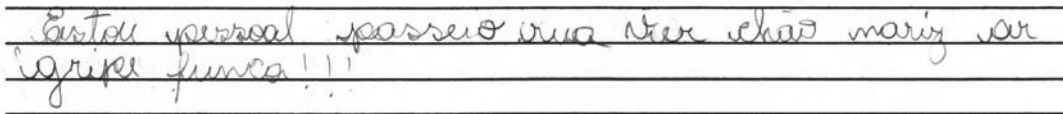 Estou pessoal passeio rua vier chão mariz ar
gripe funça!!!